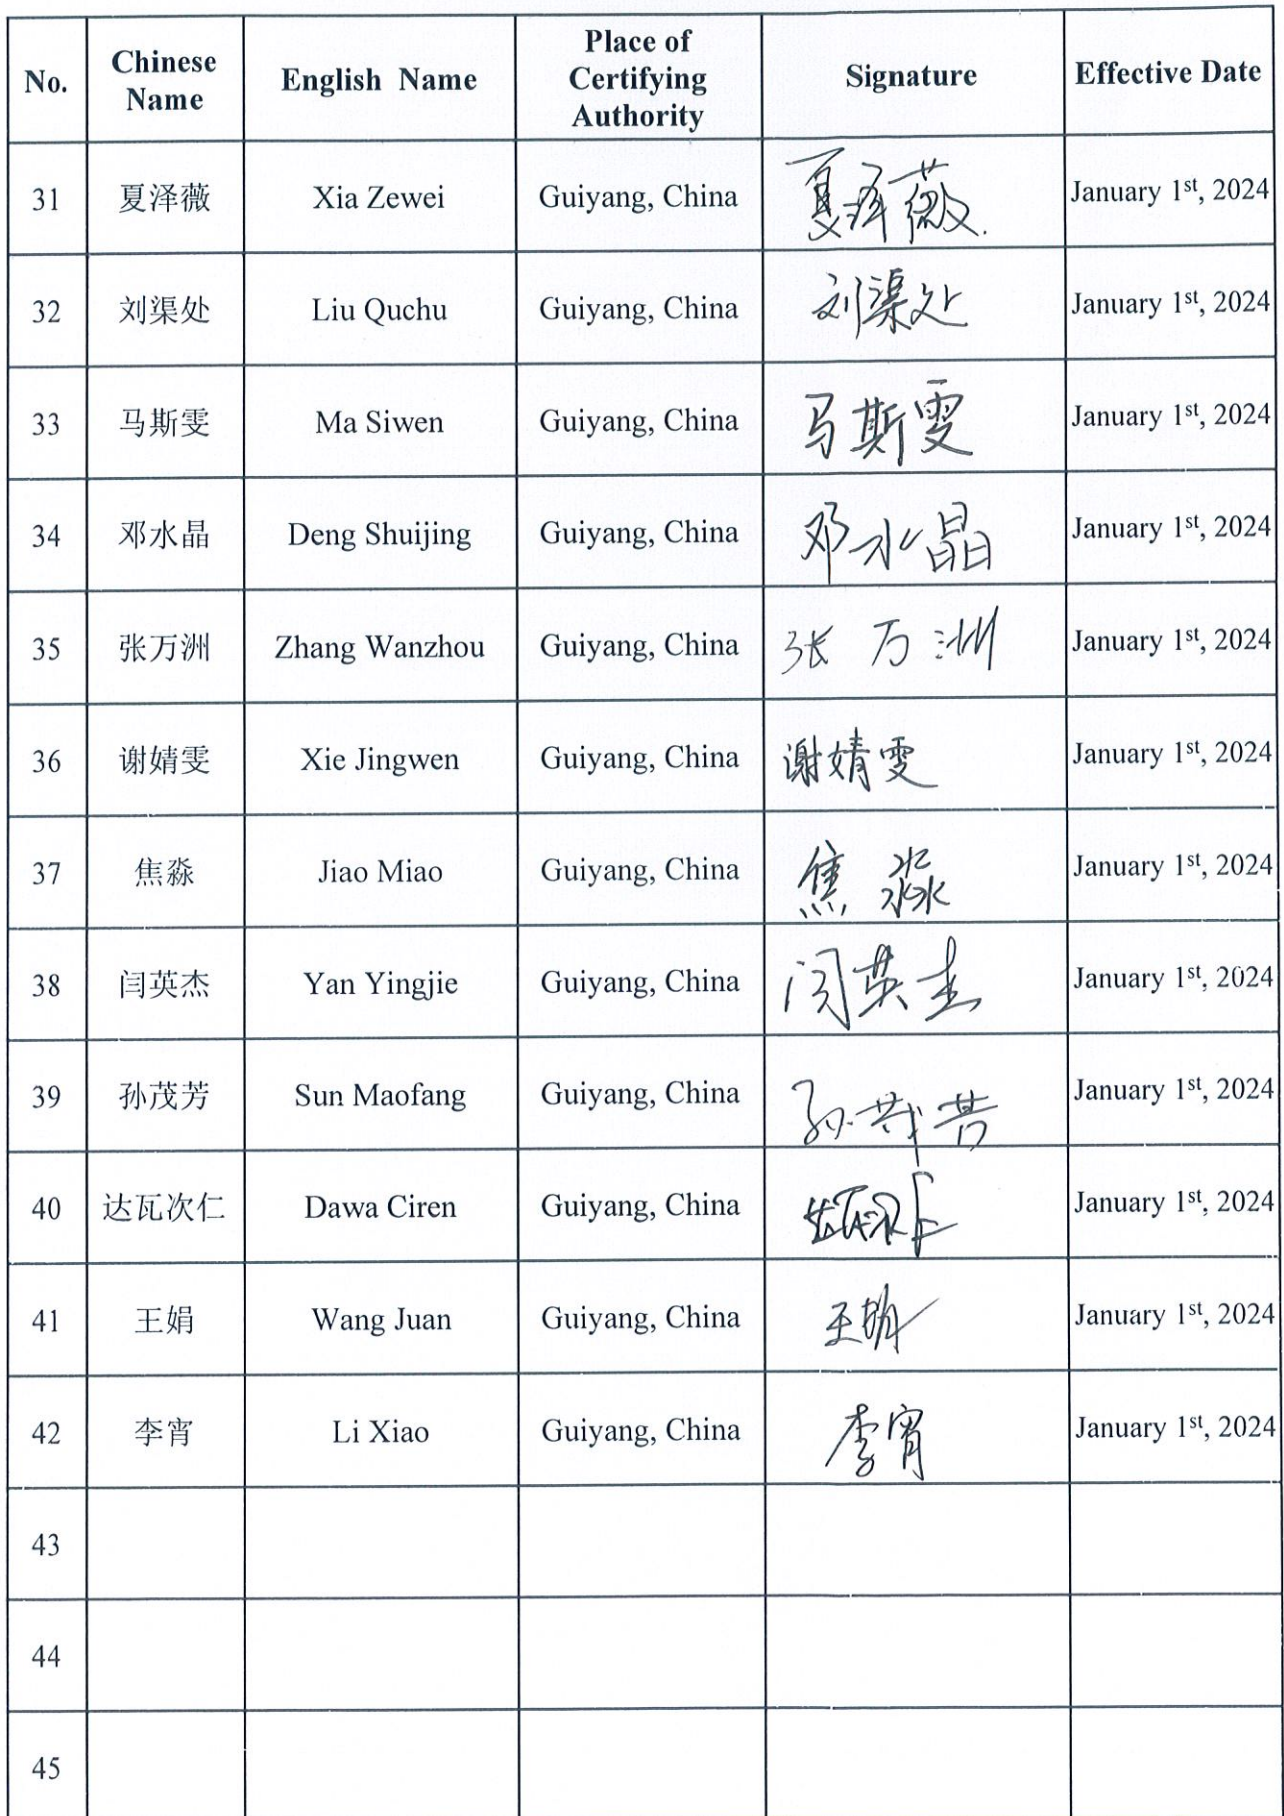 No. Chinese Name English Name Place of Certifying Authority Signature Effective Date
31 夏泽薇 Xia Zewei Guiyang, China 夏泽薇 January 1st, 2024
32 刘渠处 Liu Quchu Guiyang, China 刘渠处 January 1st, 2024
33 马斯雯 Ma Siwen Guiyang, China 马斯雯 January 1st, 2024
34 邓水晶 Deng Shuijing Guiyang, China 邓水晶 January 1st, 2024
35 张万洲 Zhang Wanzhou Guiyang, China 张万洲 January 1st, 2024
36 谢婧雯 Xie Jingwen Guiyang, China 谢婧雯 January 1st, 2024
37 焦淼 Jiao Miao Guiyang, China 焦淼 January 1st, 2024
38 闫英杰 Yan Yingjie Guiyang, China 闫英杰 January 1st, 2024
39 孙茂芳 Sun Maofang Guiyang, China 孙茂芳 January 1st, 2024
40 达瓦次仁 Dawa Ciren Guiyang, China January 1st, 2024
41 王娟 Wang Juan Guiyang, China 王娟 January 1st, 2024
42 李宵 Li Xiao Guiyang, China 李宵 January 1st, 2024
43
44
45